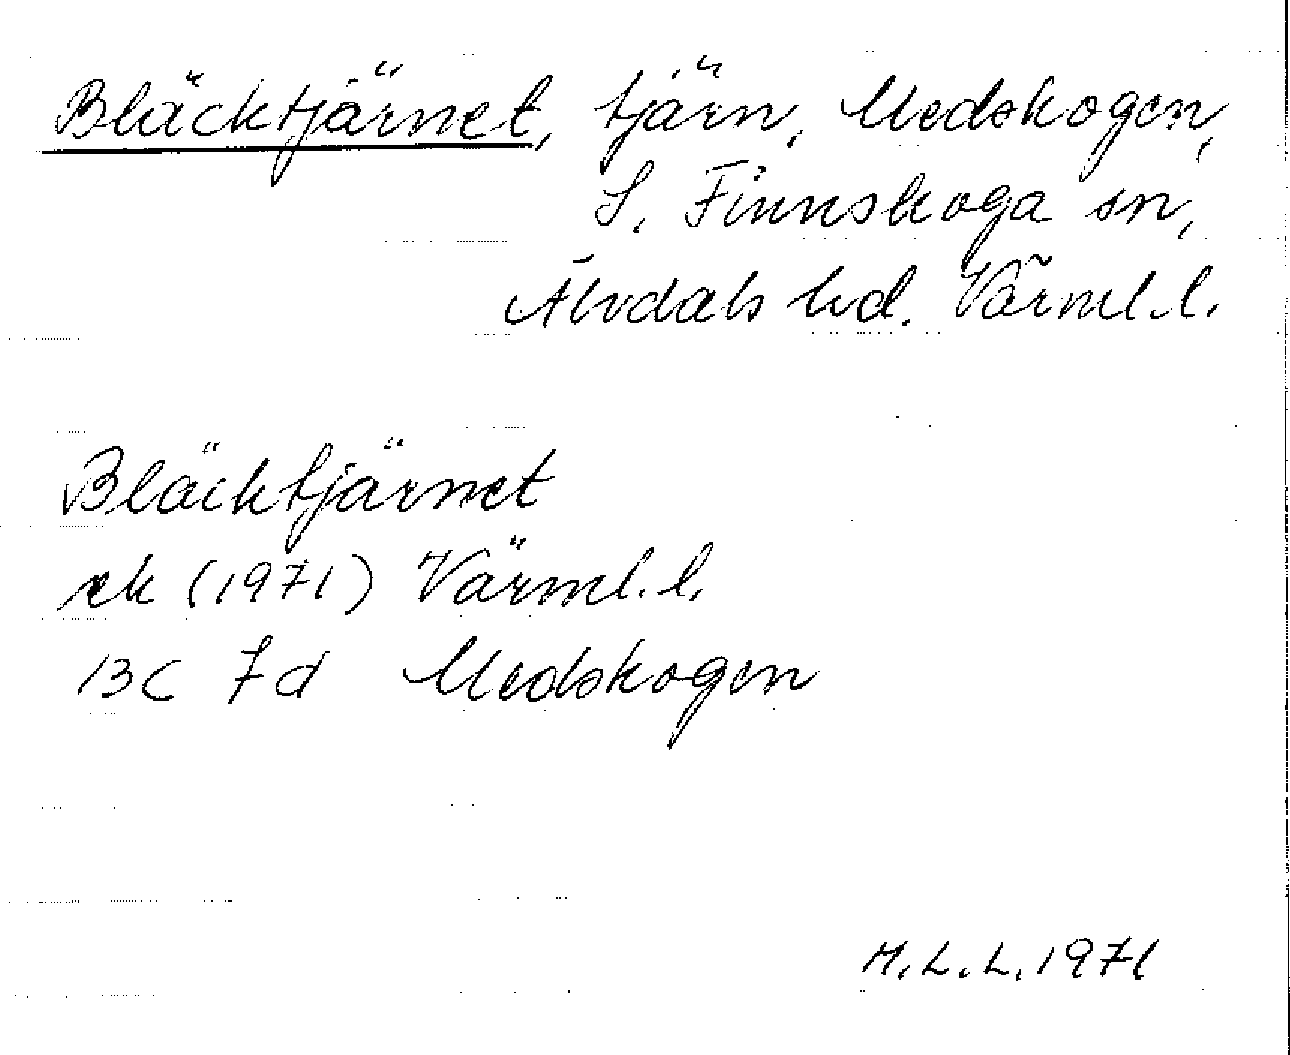 Bläcktjärnet, tjärn, Medskogen,
S. Finnskoga sn,
Älvdals hd. Värml. l.
Bläcktjärnet
ek (1971) Värml. l.
13C 7d Medskogen
M.L.L. 1971